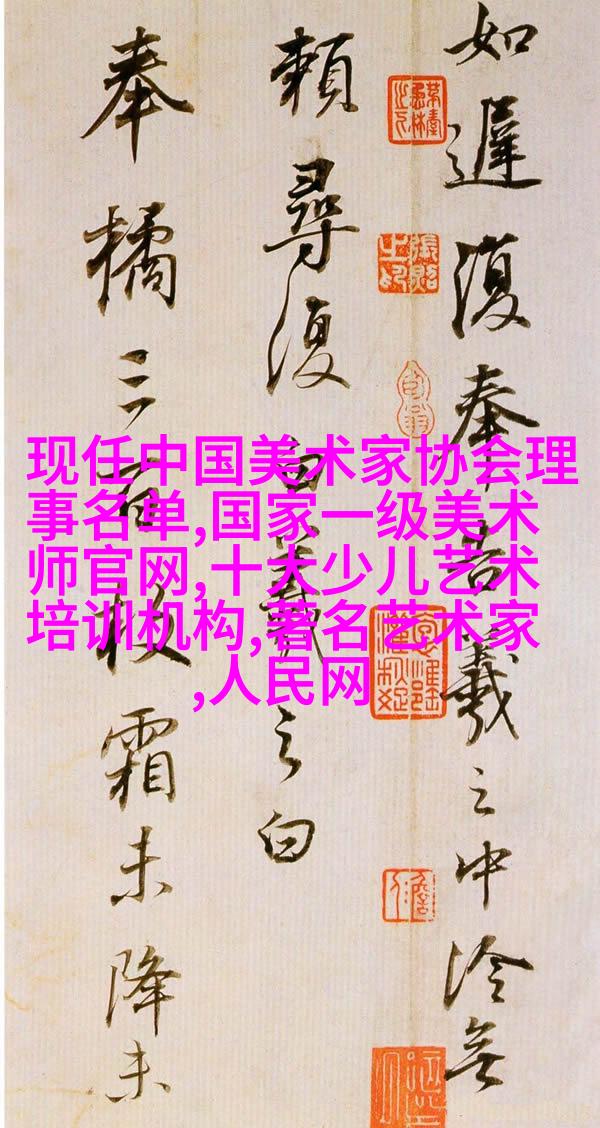 现任中国美术家协会理
事名单,国家一级美术
师官网,十大少儿艺术
培训机构,著名艺术家
,人民网
如遲復奉告羲之中冷無
賴尋復白羲之白
奉橘三百枚霜未降未